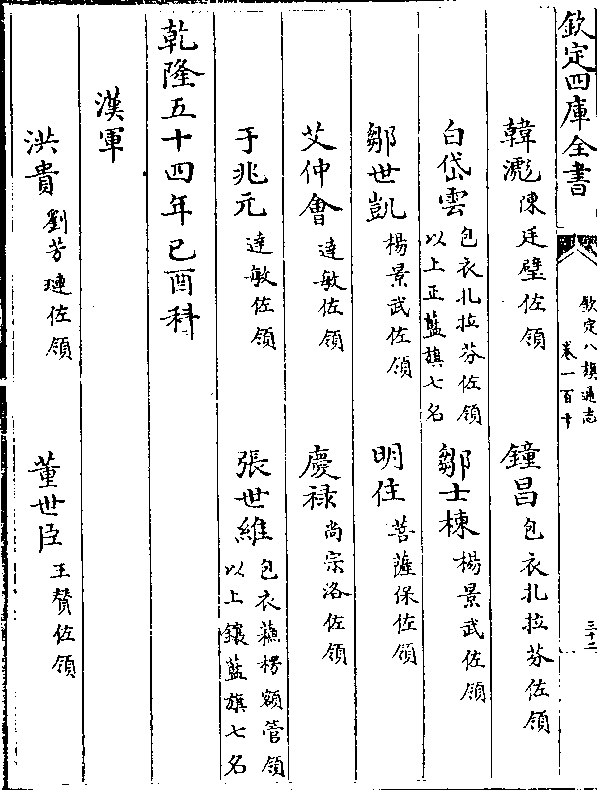 欽定四庫全書
欽定八旗通志
卷一百十
三十二
韓彪 陳廷璧佐領
鐘昌 包衣扎拉芬佐領
白岱雲 包衣扎拉芬佐領
以上正藍旗七名
鄒士棟 楊景武佐領
鄒世凱 楊景武佐領
明住 菩薩保佐領
艾仲會 達敏佐領
慶祿 尚宗洛佐領
于兆元 達敏佐領
張世維 包衣蘓楞額管領
以上鑲藍旗七名
乾隆五十四年己酉科
漢軍
洪貴 劉芳璉佐領
董世臣 王贊佐領